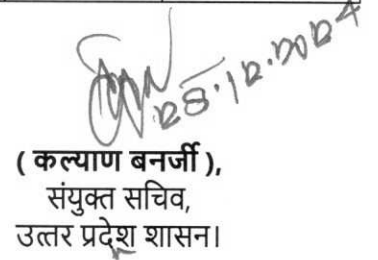 28.12.2024
( कल्याण बनर्जी ),
संयुक्त सचिव,
उत्तर प्रदेश शासन।